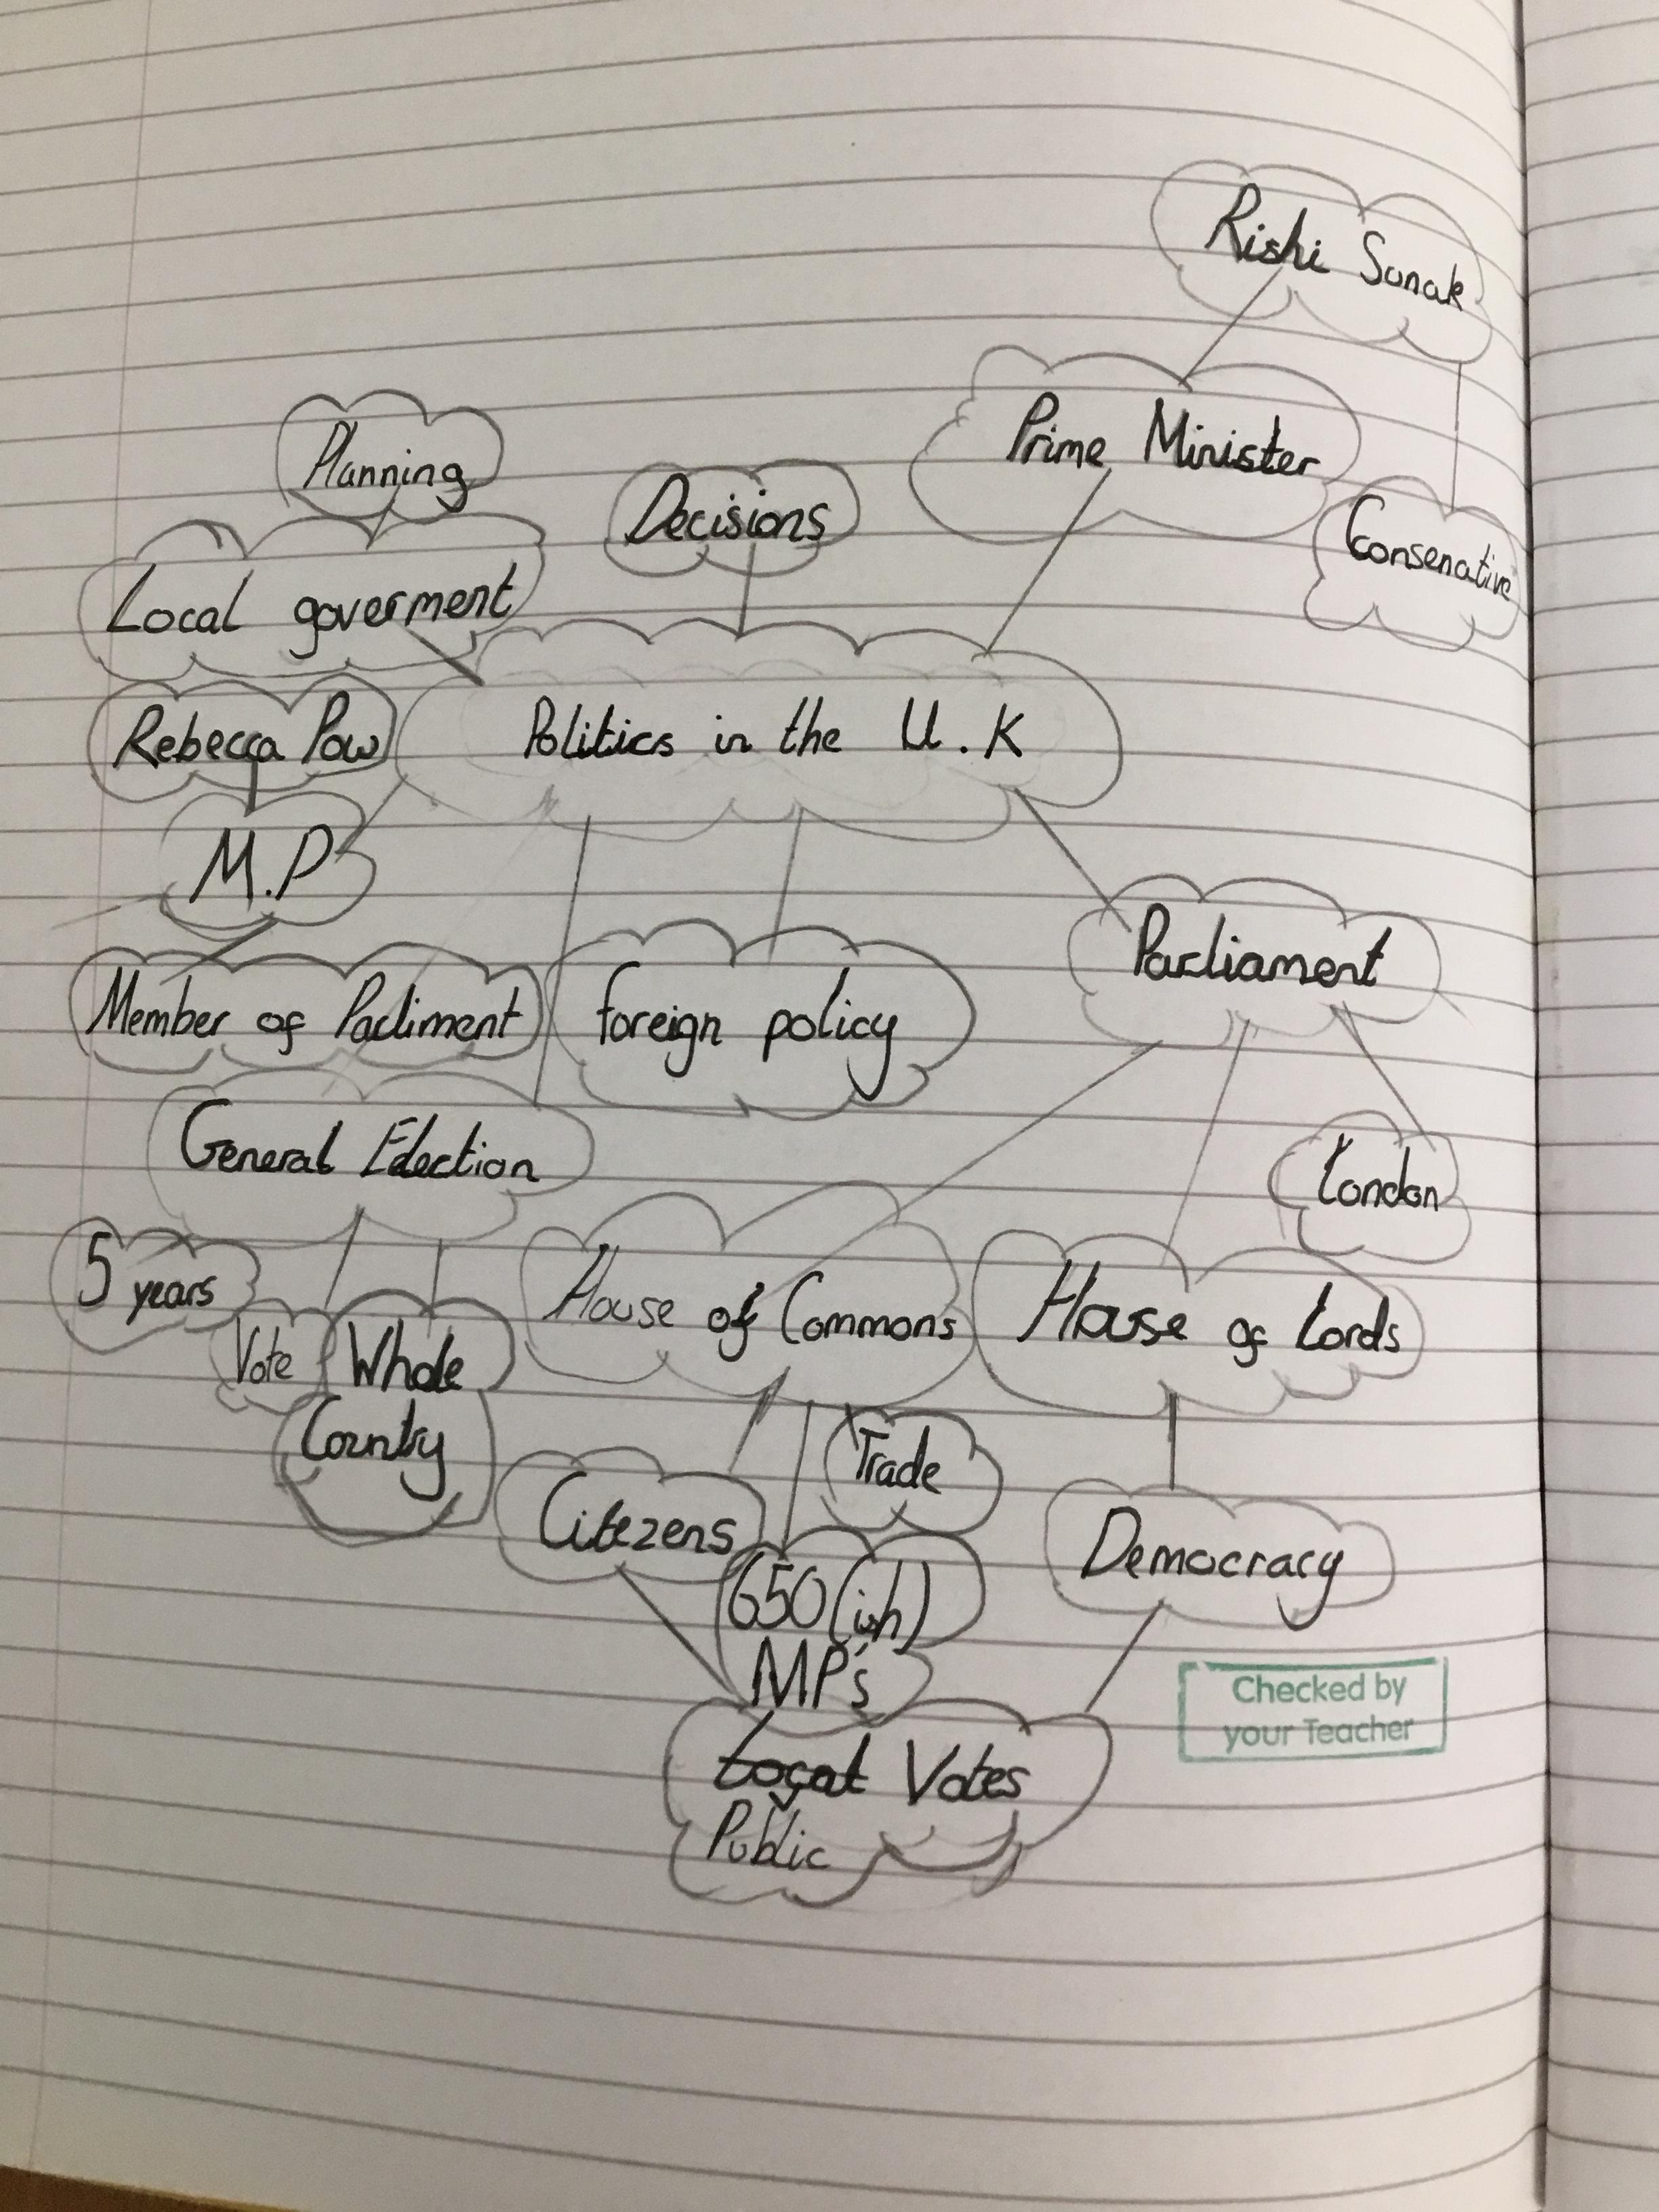 Rishi Sunak
Prime Minister
Conservative
Planning
Decisions
Local goverment
Politics in the U.K
Rebecca Pow
M.P
Member of Parliment
foreign policy
Parliament
General Election
London
5 years
Vote
Whole
Country
House of Commons
House of Lords
Trade
Citezens
650(ish)
MP's
Democracy
Local Votes
Public
Checked by
your Teacher